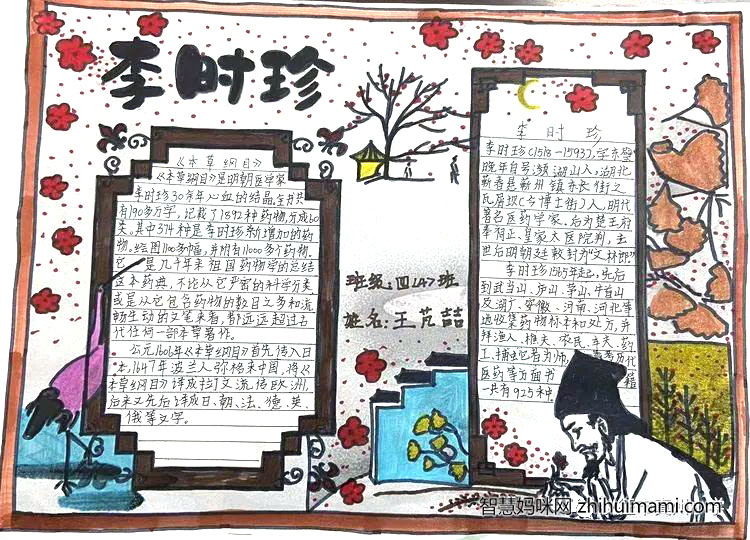 李时珍
《本草纲目》
《本草纲目》是明朝医学家
李时珍30余年心血的结晶,全书共
有190多万字,记载了1892种药物,分成60
类。其中374种是李时珍新增加的药
物。绘图1100多幅,并附有11000多个药方,
它是几千年来祖国药物学的总结
这本药典,不论从它严密的科学分类
或是从它包含药物的数目之多和流
畅生动的文笔来看,都远远超过古
代任何一部本草著作。
公元1606年《本草纲目》首先传入日
本,1647年波兰人弥格来中国,将《
本草纲目》译成拉丁文流传欧洲,
后来又先后译成日、朝、法、德、英、
俄等文字。
班级:四(4)班
姓名:王艺喆
李时珍
李时珍(1518-1593),字东璧
晚年自号濒湖山人,湖北
蕲春县蕲州镇东长街之
瓦屑坝(今博士街)人,明代
著名医药学家。后为楚王府
奉祠正、皇家太医院判,去
世后明朝廷敕封为“文林郎”
李时珍1565年起,先后
到武当山、庐山、茅山、牛首山
及湖广、安徽、河南、河北等
地收集药物标本和处方,并
拜渔人、樵夫、农民、车夫、药
工、捕蛇者为师,参考历代
医药等方面书籍
一共有925种
智慧妈咪网 zhihuimami.com